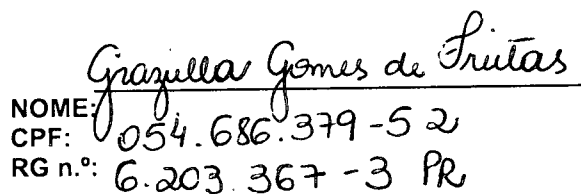 Grazulla Gomes de Freitas
NOME:
CPF: 054.686.379-52
RG n.º: 6.203.367-3 PR